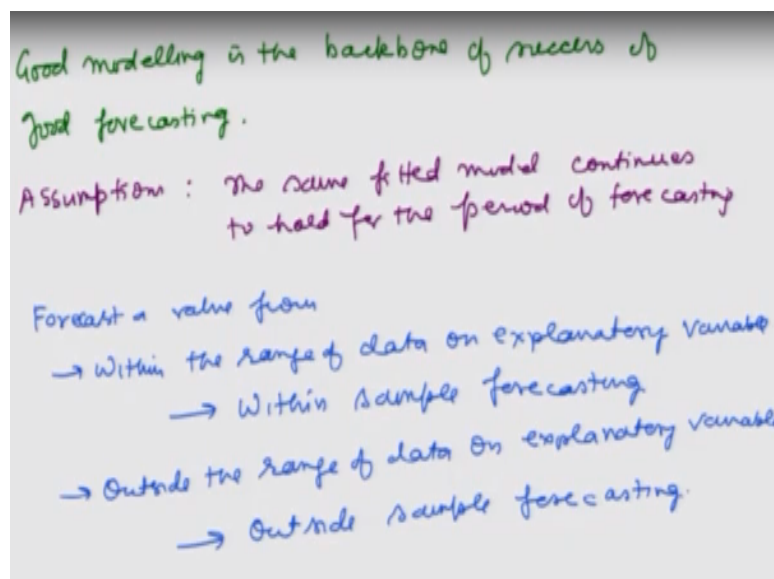 Good modelling is the backbone of success of
good forecasting.
Assumption : The same fitted model continues
to hold for the period of forecasting
Forecast a value from
→ Within the range of data on explanatory variable
→ Within sample forecasting
→ Outside the range of data on explanatory variable
→ Outside sample forecasting.